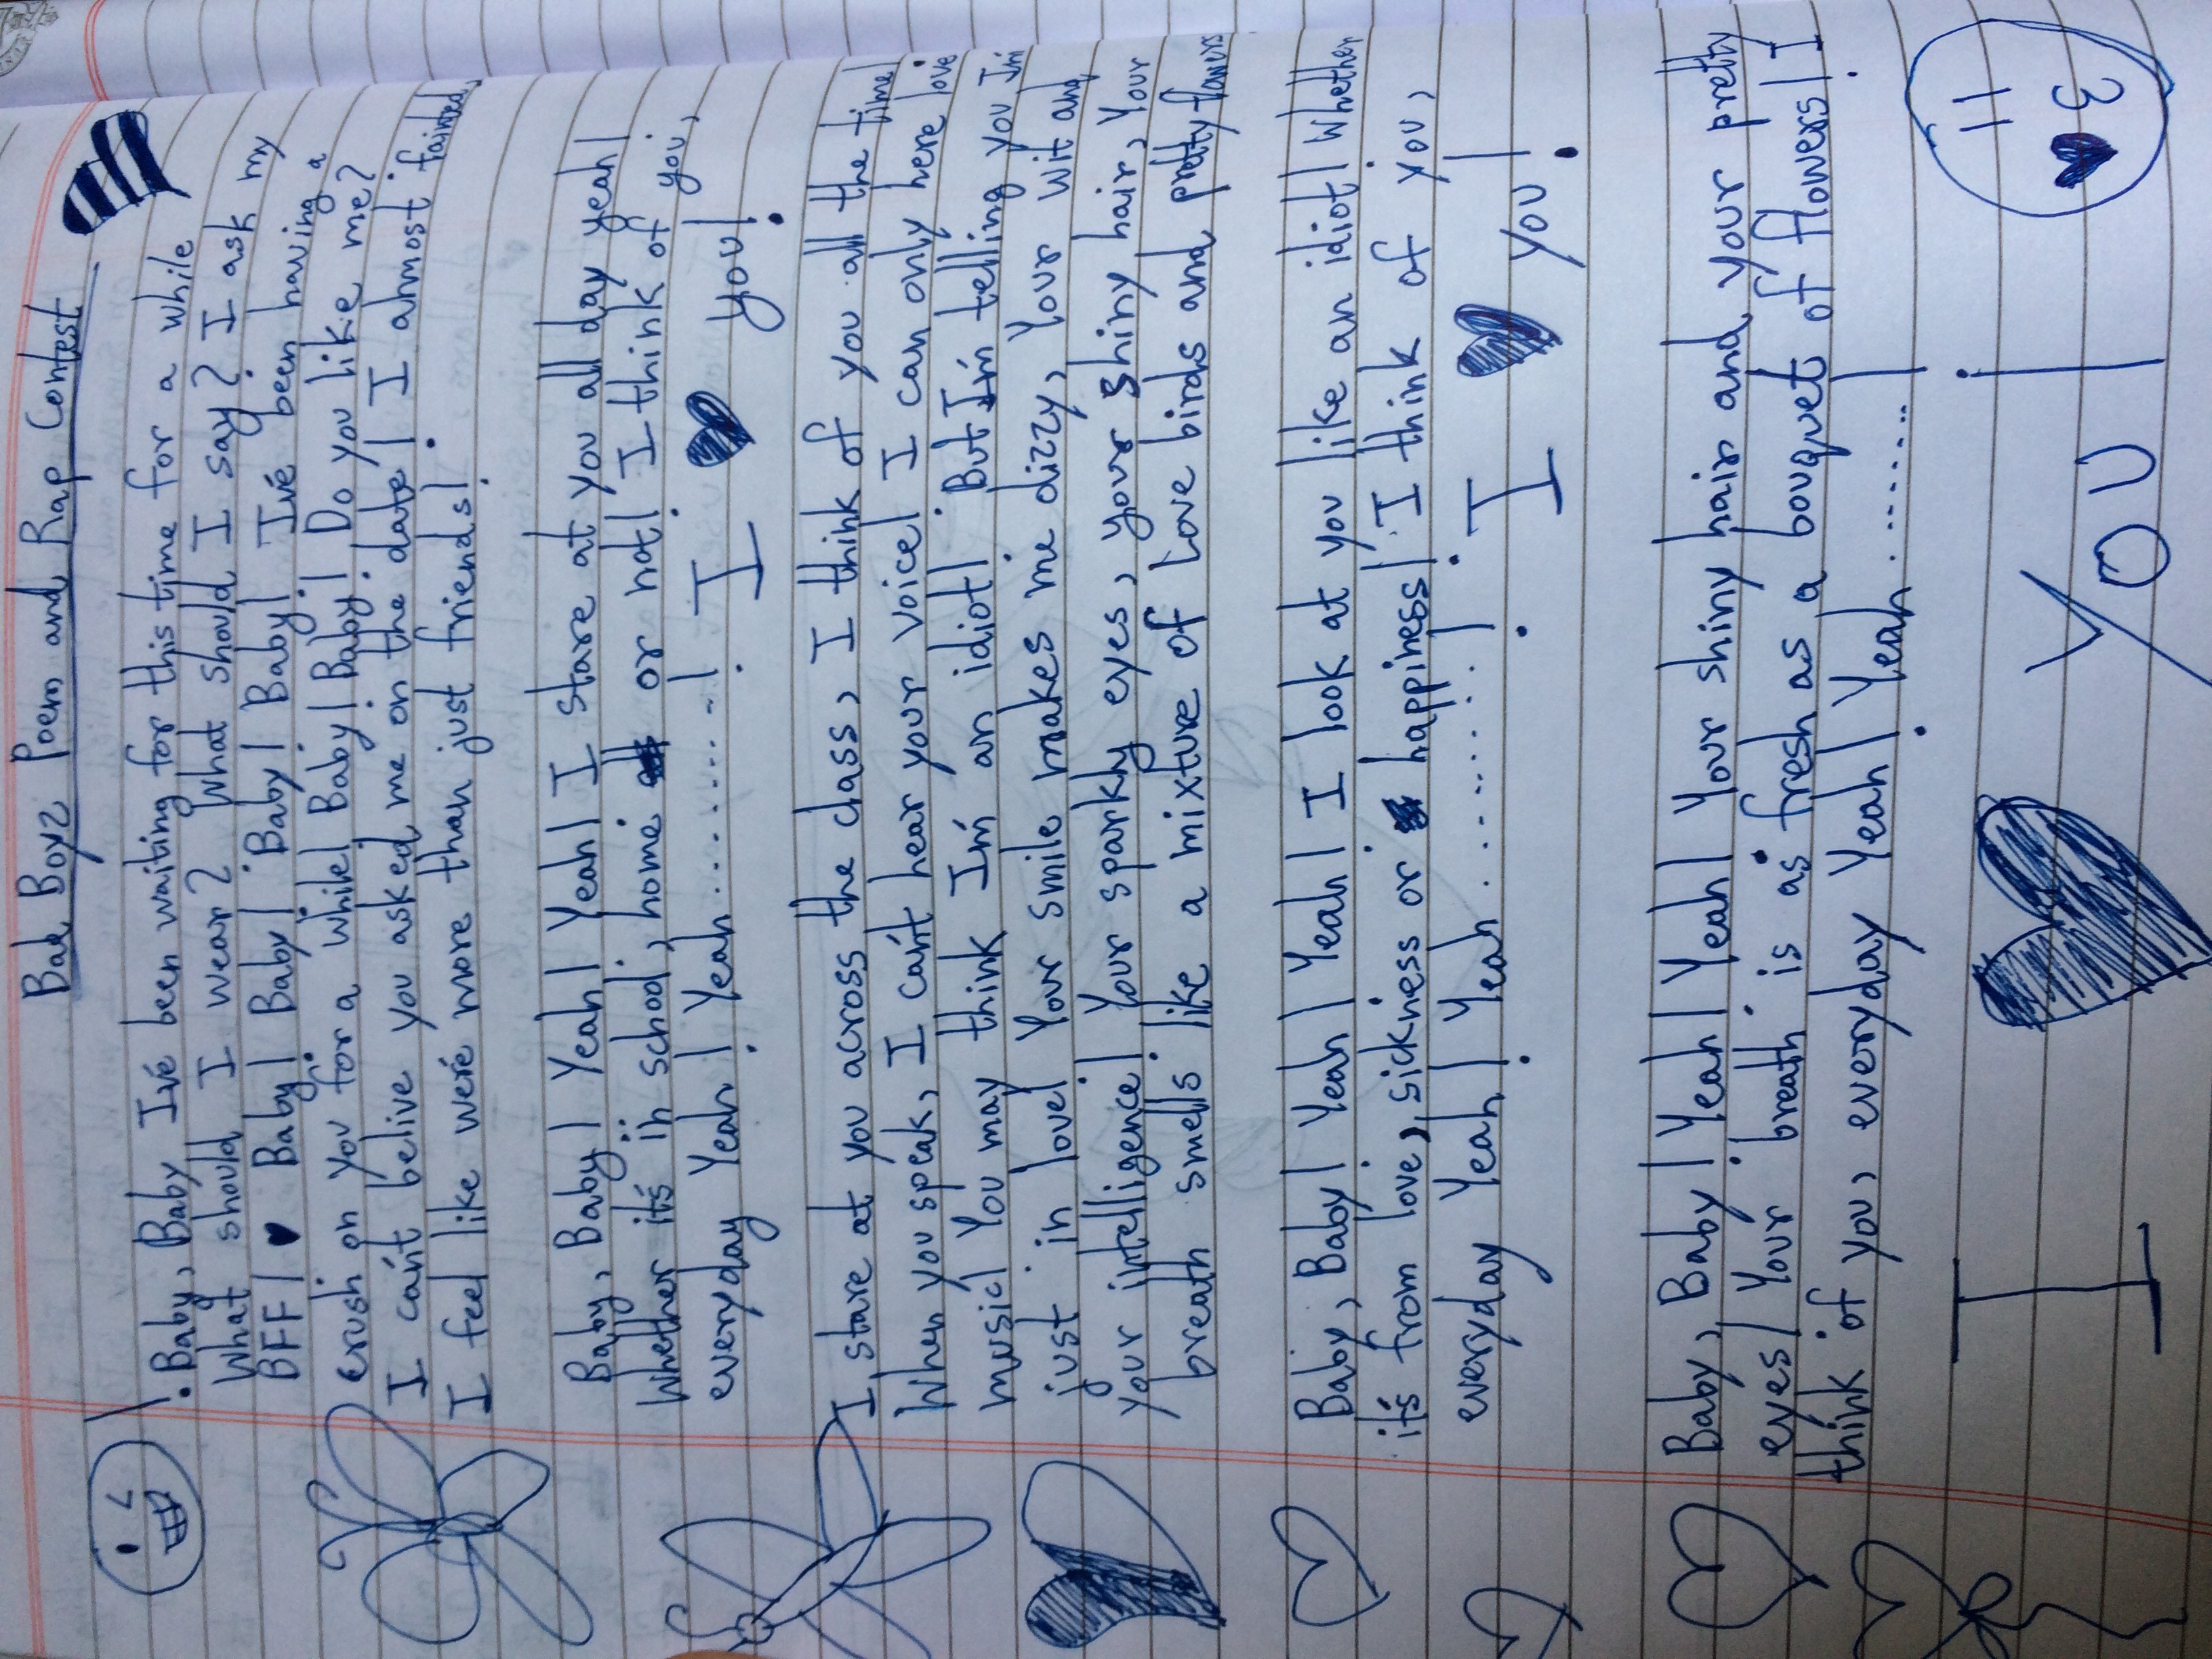 Bad Boyz Poem and Rap Contest
Baby, Baby I've been waiting for this time for a while!
What should I wear? What should I say? I ask my
BFF! ♥ Baby! Baby! Baby! Baby! Baby! I've been having a
crush on you for a while! Baby! Baby! Do you like me?
I can't belive you asked me on the date! I almost fainted,
I feel like we're more than just friends!
Baby, Baby! Yeah! Yeah! I stare at you all day yeah!
Whether it's in school, home or not! I think of you,
everyday Yeah! Yeah........! I ♥ you!
I stare at you across the class, I think of you all the time!
When you speak, I can't hear your voice! I can only here love
music! You may think I'm an idiot! But I'm telling you I'm
just in love! Your smile makes me dizzy, Your wit and
your intelligence! Your sparkly eyes, your shiny hair, Your
breath smells like a mixture of love birds and pretty flowers!
Baby, Baby! Yeah! Yeah! I look at you like an idiot! Whether
it's from love, sickness or happiness! I think of you,
everyday Yeah! Yeah........! I ♥ you!
Baby, Baby! Yeah! Yeah! Your shiny hair and your pretty
eyes! Your breath is as fresh as a bouquet of flowers! I
think of you, everyday Yeah! Yeah........!
I ♥ YOU!